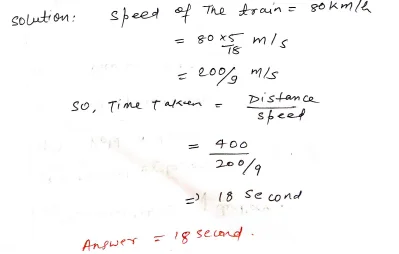 Solution: Speed of The train = 80 km/h
= 80 × 5/18 m/s
= 200/9 m/s
SO, Time Taken = Distance/speed
= 400/200/9
=> 18 Second
Answer = 18 second.